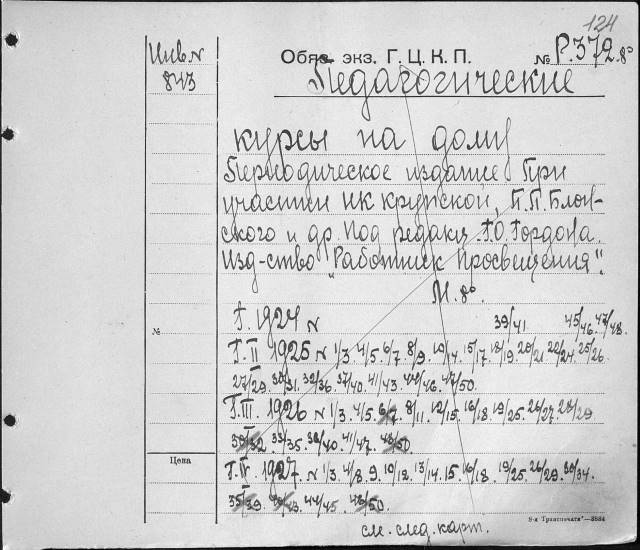 124
Инв.№
843
Обяз. экз. Г. Ц. К. П.
№ Р.372.8°
Педагогические
курсы на дому
Периодическое издание При
участии НК крупской, П.П.Блон-
ского и др. Под редакц. Г.О. Гордона.
Изд-ство "Работник Просвещения".
М. 8°.
Г. 1924 № 39/41. 45/46. 47/48.
№
Г. II 1925 № 1/3. 4/5. 6/7. 8/9. 10/14. 15/17. 18/19. 20/21. 22/24. 25/26.
27/29. 30/31. 32/36. 37/40. 41/43. 44/46. 47/50.
Г. III. 1926 № 1/3. 4/5. 6/7. 8/11. 12/15. 16/18. 19/25. 26/27. 28/29
30/32. 33/35. 36/40. 41/47. 48/50.
Цена
Г. IV 1927. № 1/3. 4/8. 9. 10/12. 13/14. 15. 16/18. 19/25. 26/29. 30/34.
35/39. 44/45. 46/50.
см. след. карт.
9-я „Транспечати“—3584